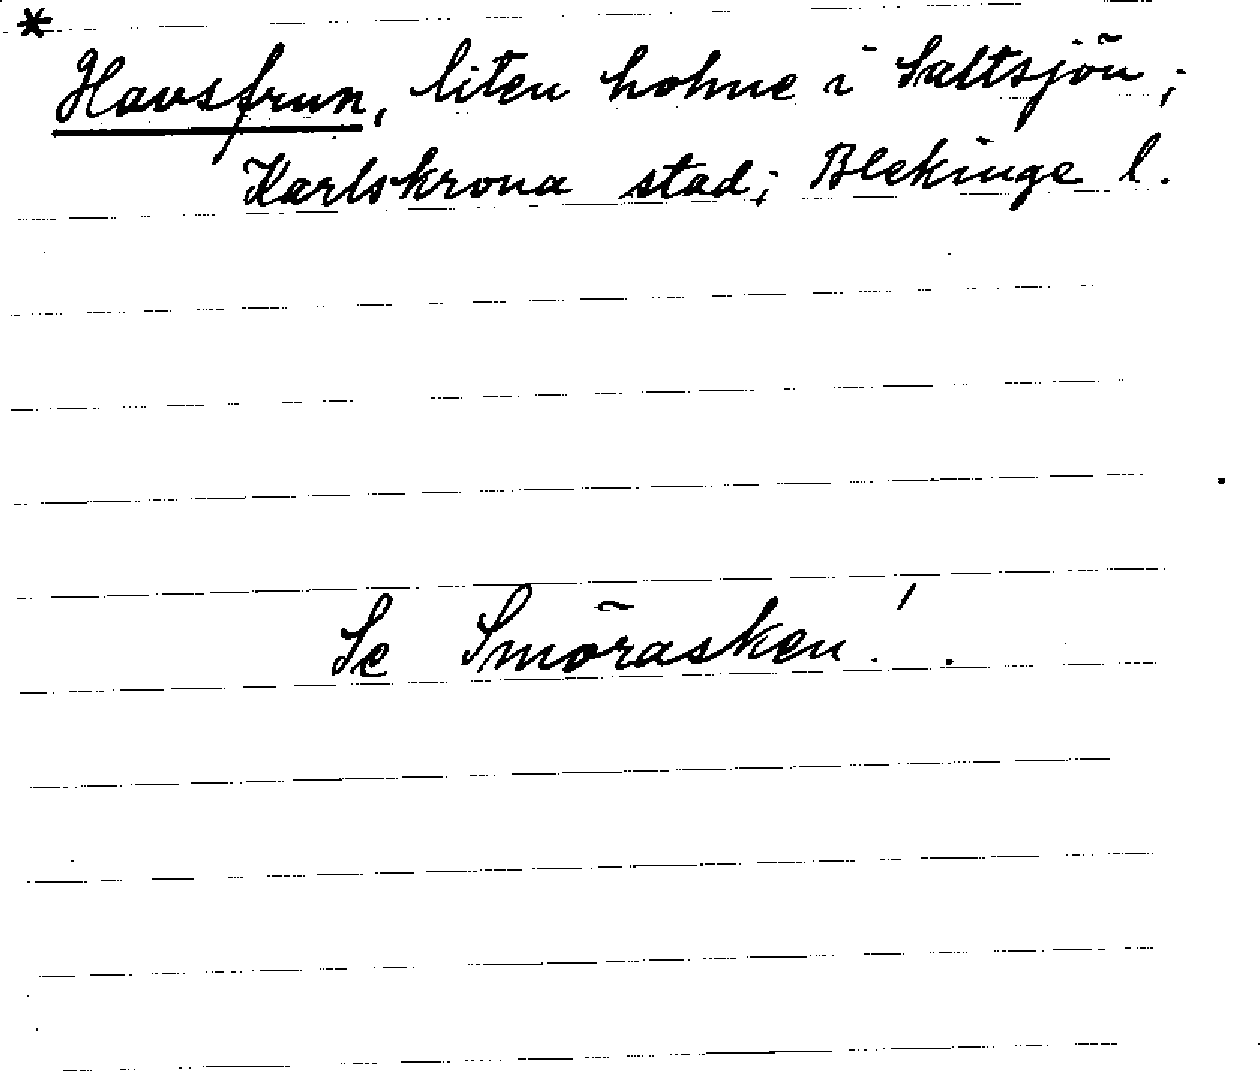 *
Havsfrun, liten holme i Saltsjön;
Karlskrona stad; Blekinge l.
Se Smörasken!